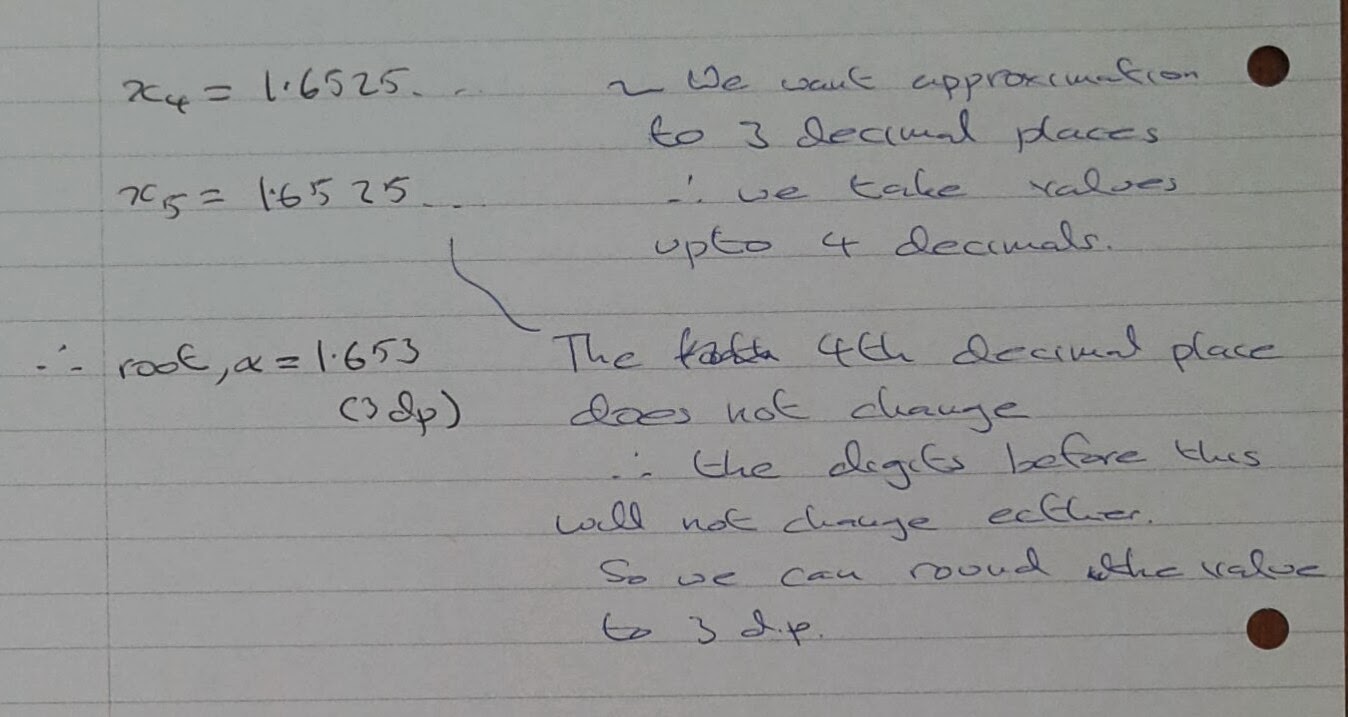 x₄ = 1.6525... ~ We want approximation
to 3 decimal places
x₅ = 1.6525... ∴ we take values
upto 4 decimals.
∴ root, α = 1.653 The 4th decimal place
(3dp) does not change
∴ the digits before this
will not change either.
So we can round the value
to 3 d.p.